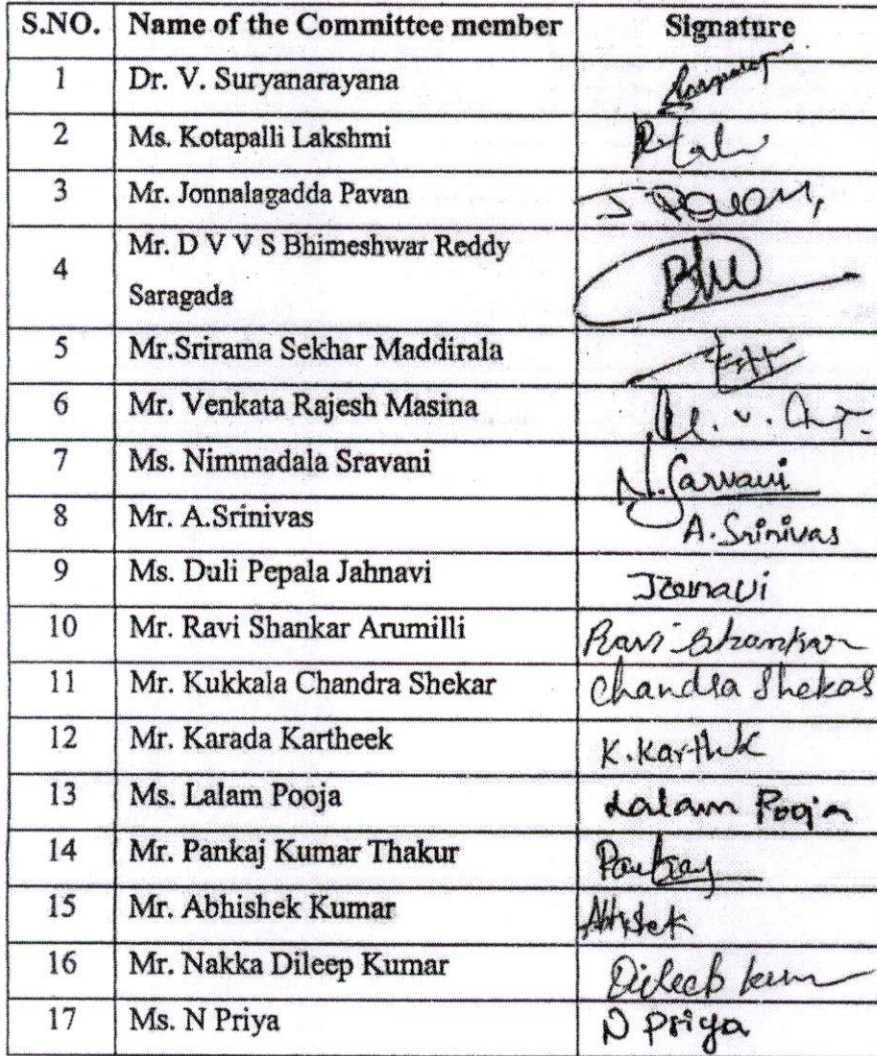 S.NO. Name of the Committee member Signature
1 Dr. V. Suryanarayana
2 Ms. Kotapalli Lakshmi
3 Mr. Jonnalagadda Pavan J Pavan,
4 Mr. D V V S Bhimeshwar Reddy
Saragada
5 Mr.Srirama Sekhar Maddirala
6 Mr. Venkata Rajesh Masina
7 Ms. Nimmadala Sravani N. Sarvani
8 Mr. A.Srinivas A. Srinivas
9 Ms. Duli Pepala Jahnavi
10 Mr. Ravi Shankar Arumilli Ravi Shankar
11 Mr. Kukkala Chandra Shekar Chandra Shekar
12 Mr. Karada Kartheek K. Karthik
13 Ms. Lalam Pooja Lalam Pooja
14 Mr. Pankaj Kumar Thakur Pankaj
15 Mr. Abhishek Kumar
16 Mr. Nakka Dileep Kumar Dileeb kum
17 Ms. N Priya N Priya